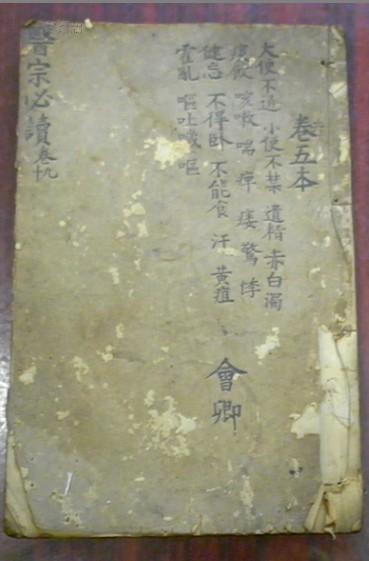 卷五本
大便不通 小便不禁 遺精 赤白濁
痰飲 咳嗽 喘 痺 痿 驚 悸
健忘 不得臥 不能食 汗 黃疸
霍亂 嘔吐噦 嘔
會卿
醫宗必讀 卷十九